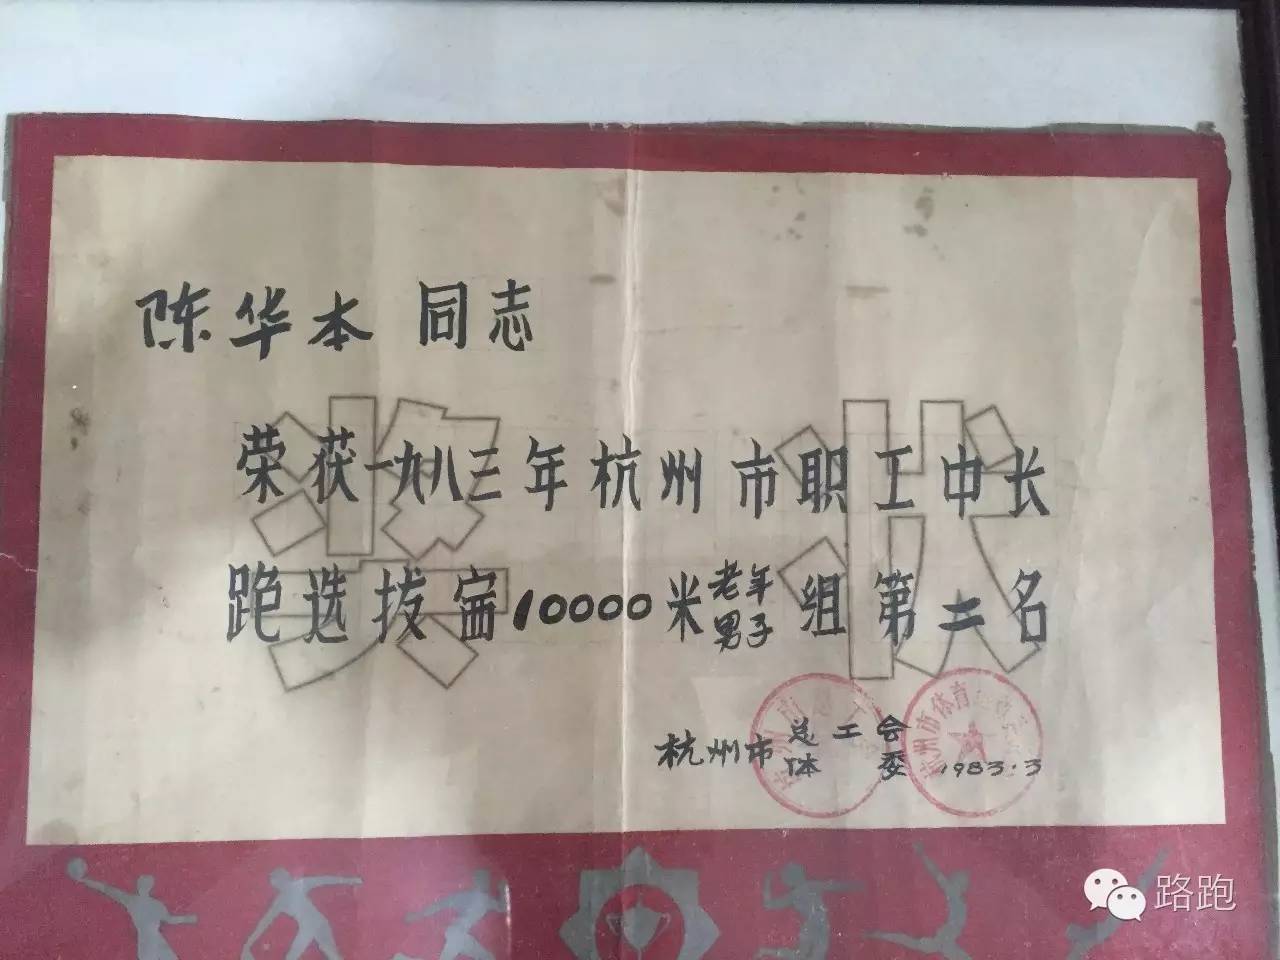 陈华本 同志
奖状
荣获一九八三年杭州市职工中长
跑选拔赛10000米老年男子组第二名
杭州市总工会
体委 1983.3
杭州市总工会
杭州市体育运动委员会
路跑